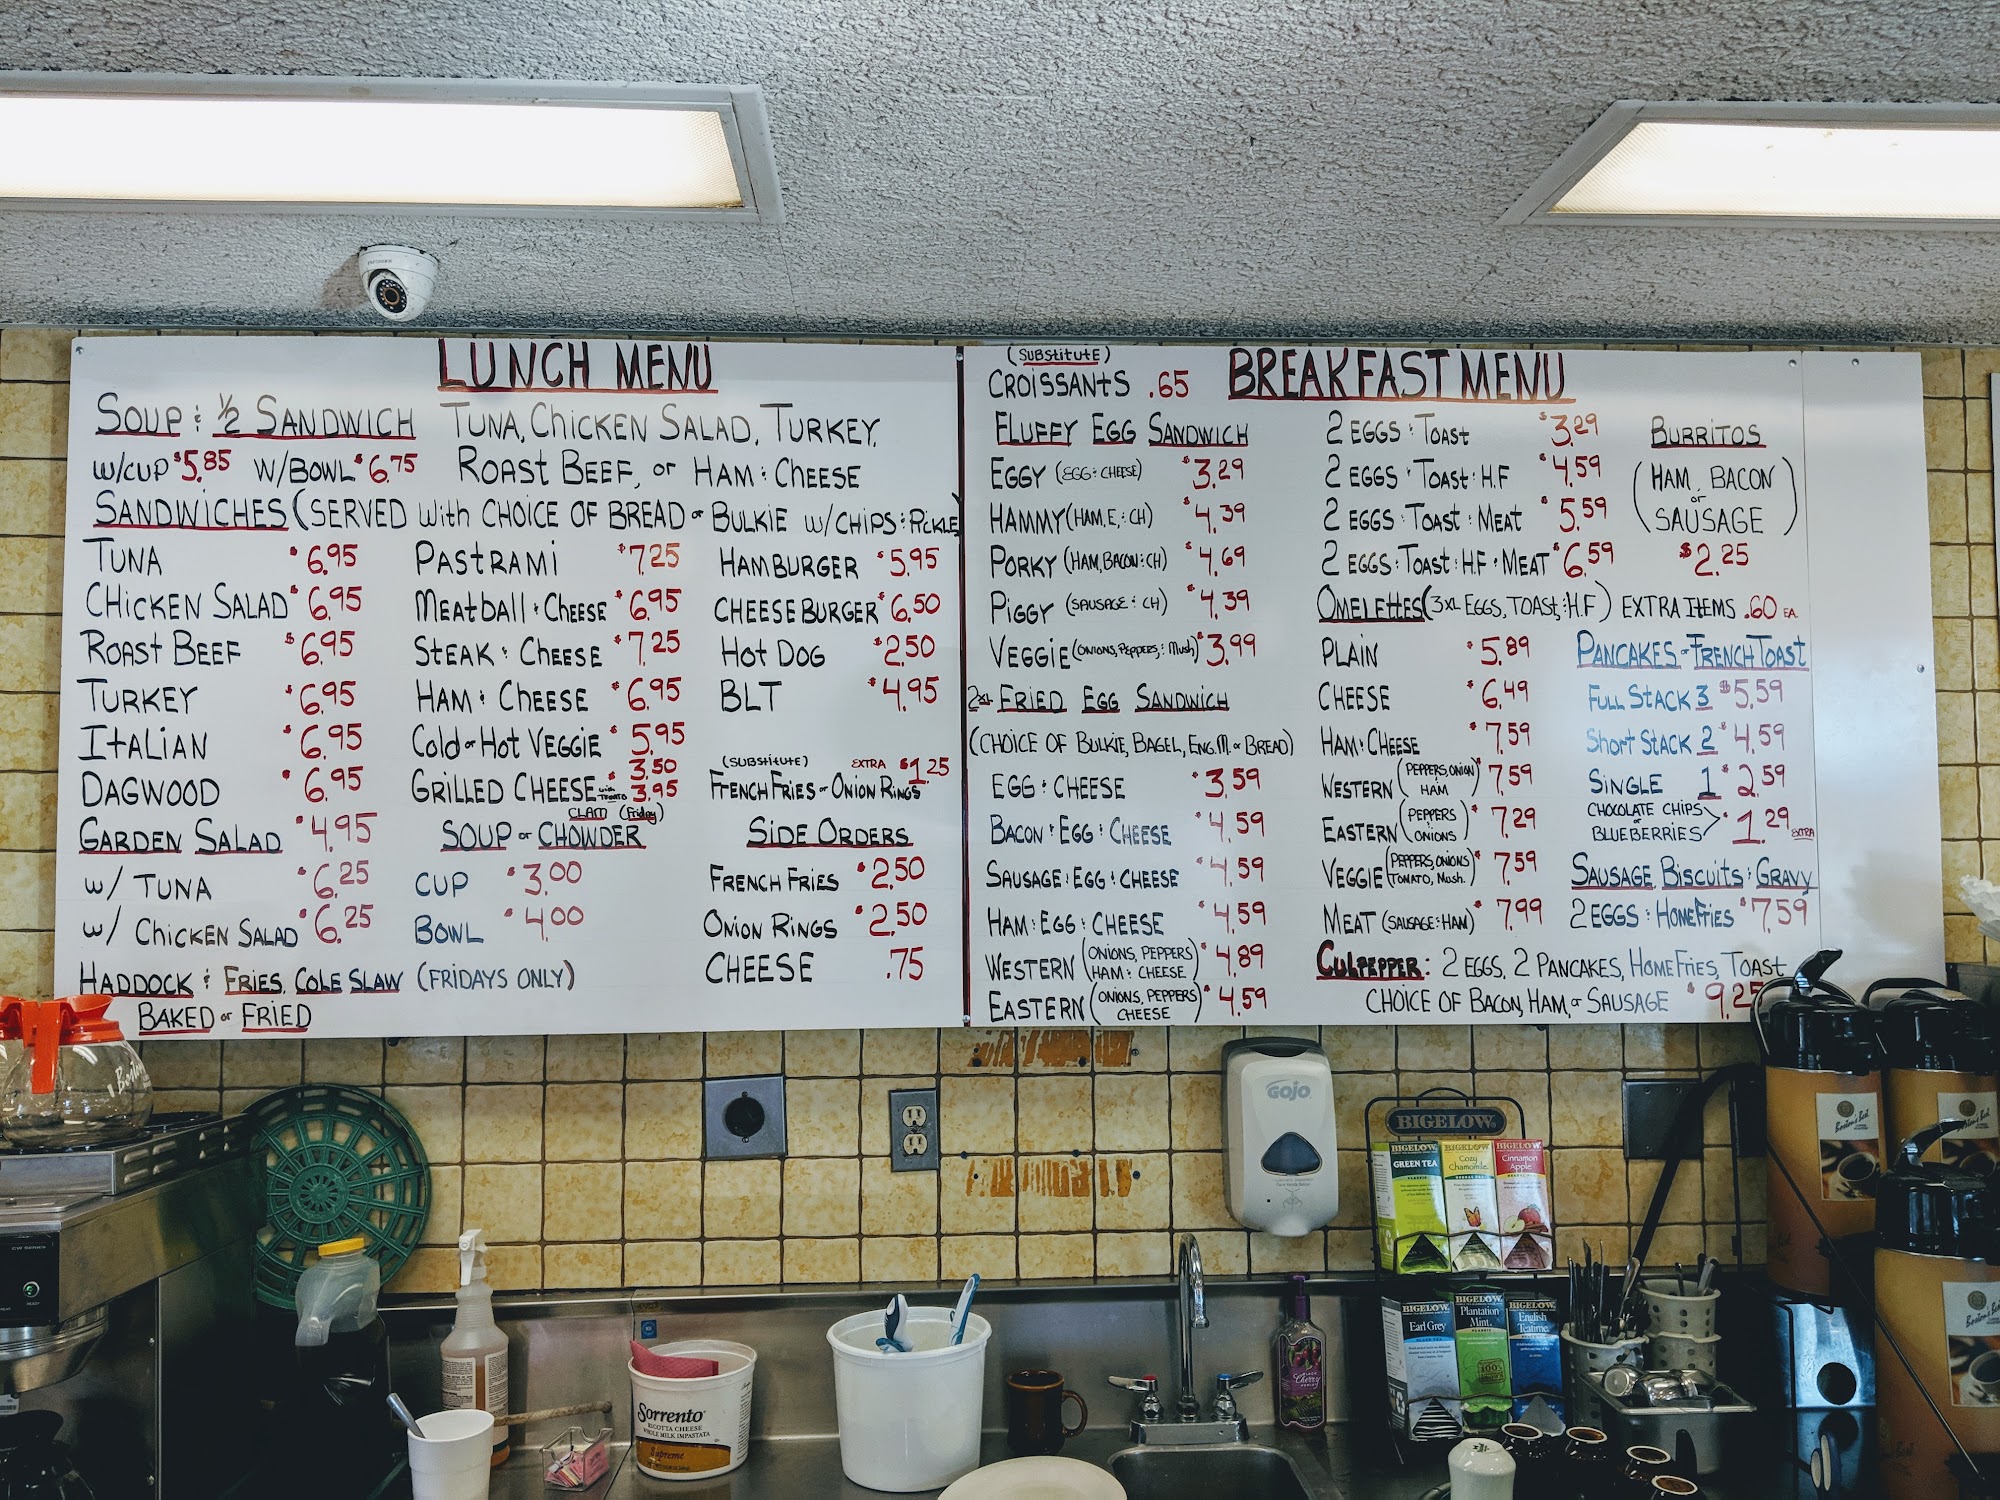 LUNCH MENU
SOUP & ½ SANDWICH TUNA, CHICKEN SALAD, TURKEY,
W/CUP $5.85 W/BOWL $6.75 ROAST BEEF, or HAM & CHEESE
SANDWICHES (SERVED with CHOICE OF BREAD or BULKIE w/CHIPS & PICKLE)
TUNA $6.95
CHICKEN SALAD $6.95
ROAST BEEF $6.95
TURKEY $6.95
ITALIAN $6.95
DAGWOOD $6.95
GARDEN SALAD $4.95
w/ TUNA $6.25
w/ CHICKEN SALAD $6.25
HADDOCK & FRIES, COLE SLAW (FRIDAYS ONLY)
BAKED or FRIED
PASTRAMI $7.25
MEATBALL & CHEESE $6.95
STEAK & CHEESE $7.25
HAM & CHEESE $6.95
COLD or HOT VEGGIE $5.95
GRILLED CHEESE $3.50
with TOMATO $3.95
CLAM (Friday)
SOUP or CHOWDER
CUP $3.00
BOWL $4.00
HAMBURGER $5.95
CHEESEBURGER $6.50
HOT DOG $2.50
BLT $4.95
(SUBSTITUTE) EXTRA $1.25
FRENCH FRIES or ONION RINGS
SIDE ORDERS
FRENCH FRIES $2.50
ONION RINGS $2.50
CHEESE .75
BREAKFAST MENU
(SUBSTITUTE)
CROISSANTS .65
FLUFFY EGG SANDWICH
EGGY (EGG & CHEESE) $3.29
HAMMY (HAM, E, & CH) $4.39
PORKY (HAM, BACON & CH) $4.69
PIGGY (SAUSAGE & CH) $4.39
VEGGIE (ONIONS, PEPPERS, & MUSH) $3.99
2 XL FRIED EGG SANDWICH
(CHOICE OF BULKIE, BAGEL, ENG. M. or BREAD)
EGG & CHEESE $3.59
BACON & EGG & CHEESE $4.59
SAUSAGE & EGG & CHEESE $4.59
HAM & EGG & CHEESE $4.59
WESTERN (ONIONS, PEPPERS HAM & CHEESE) $4.89
EASTERN (ONIONS, PEPPERS CHEESE) $4.59
2 EGGS & TOAST $3.29
2 EGGS & TOAST & H.F $4.59
2 EGGS & TOAST & MEAT $5.59
2 EGGS & TOAST & H.F & MEAT $6.59
OMELETTES (3 XL EGGS, TOAST, & H.F) EXTRA ITEMS .60 EA.
PLAIN $5.89
CHEESE $6.49
HAM & CHEESE $7.59
WESTERN (PEPPERS, ONION HAM) $7.59
EASTERN (PEPPERS & ONIONS) $7.29
VEGGIE (PEPPERS, ONIONS TOMATO, MUSH.) $7.59
MEAT (SAUSAGE & HAM) $7.99
CULPEPPER: 2 EGGS, 2 PANCAKES, HOMEFRIES, TOAST
CHOICE OF BACON, HAM or SAUSAGE $9.25
BURRITOS
(HAM, BACON
or
SAUSAGE)
$2.25
PANCAKES or FRENCH TOAST
FULL STACK 3 $5.59
SHORT STACK 2 $4.59
SINGLE 1 $2.59
CHOCOLATE CHIPS
or
BLUEBERRIES $1.29 EXTRA
SAUSAGE, BISCUITS & GRAVY
2 EGGS & HOMEFRIES $7.59
GOJO
BIGELOW
BIGELOW
GREEN TEA
CLASSIC
BIGELOW
Cozy
Chamomile
BIGELOW
Cinnamon
Apple
BIGELOW
Earl Grey
BIGELOW
Plantation
Mint
CLASSIC
BIGELOW
English
Teatime
Sorrento
RICOTTA CHEESE
WHOLE MILK IMPASTATA
Supreme
Cherry
Boston's Best
Boston's Best
Boston's Best
CW SERIES
READY